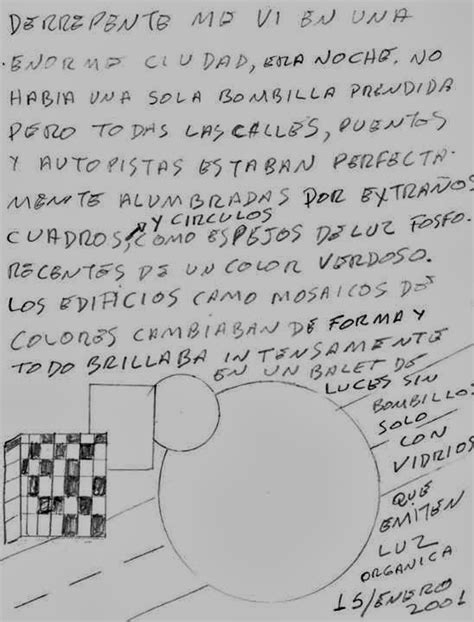 DERREPENTE ME VI EN UNA
ENORME CIUDAD, ERA NOCHE. NO
HABIA UNA SOLA BOMBILLA PRENDIDA
PERO TODAS LAS CALLES, PUENTES
Y AUTOPISTAS ESTABAN PERFECTA-
MENTE ALUMBRADAS POR EXTRAÑOS
Y CIRCULOS
CUADROS, COMO ESPEJOS DE LUZ FOSFO-
RECENTES DE UN COLOR VERDOSO.
LOS EDIFICIOS CAMO MOSAICOS DE
COLORES CAMBIABAN DE FORMA Y
TODO BRILLABA INTENSAMENTE
EN UN BALET DE
LUCES SIN
BOMBILLOS
SOLO
CON
VIDRIOS
QUE
EMITEN
LUZ
ORGANICA
15/ENERO
2001